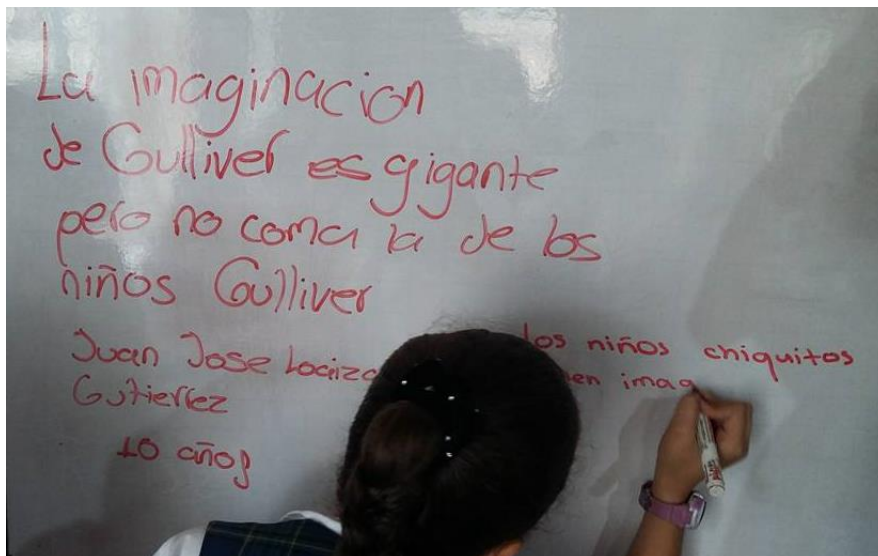 La imaginacion
de Gulliver es gigante
pero no coma la de los
niños Gulliver
Juan Jose Loaiza
Gutierrez
10 años
los niños chiquitos
en imag